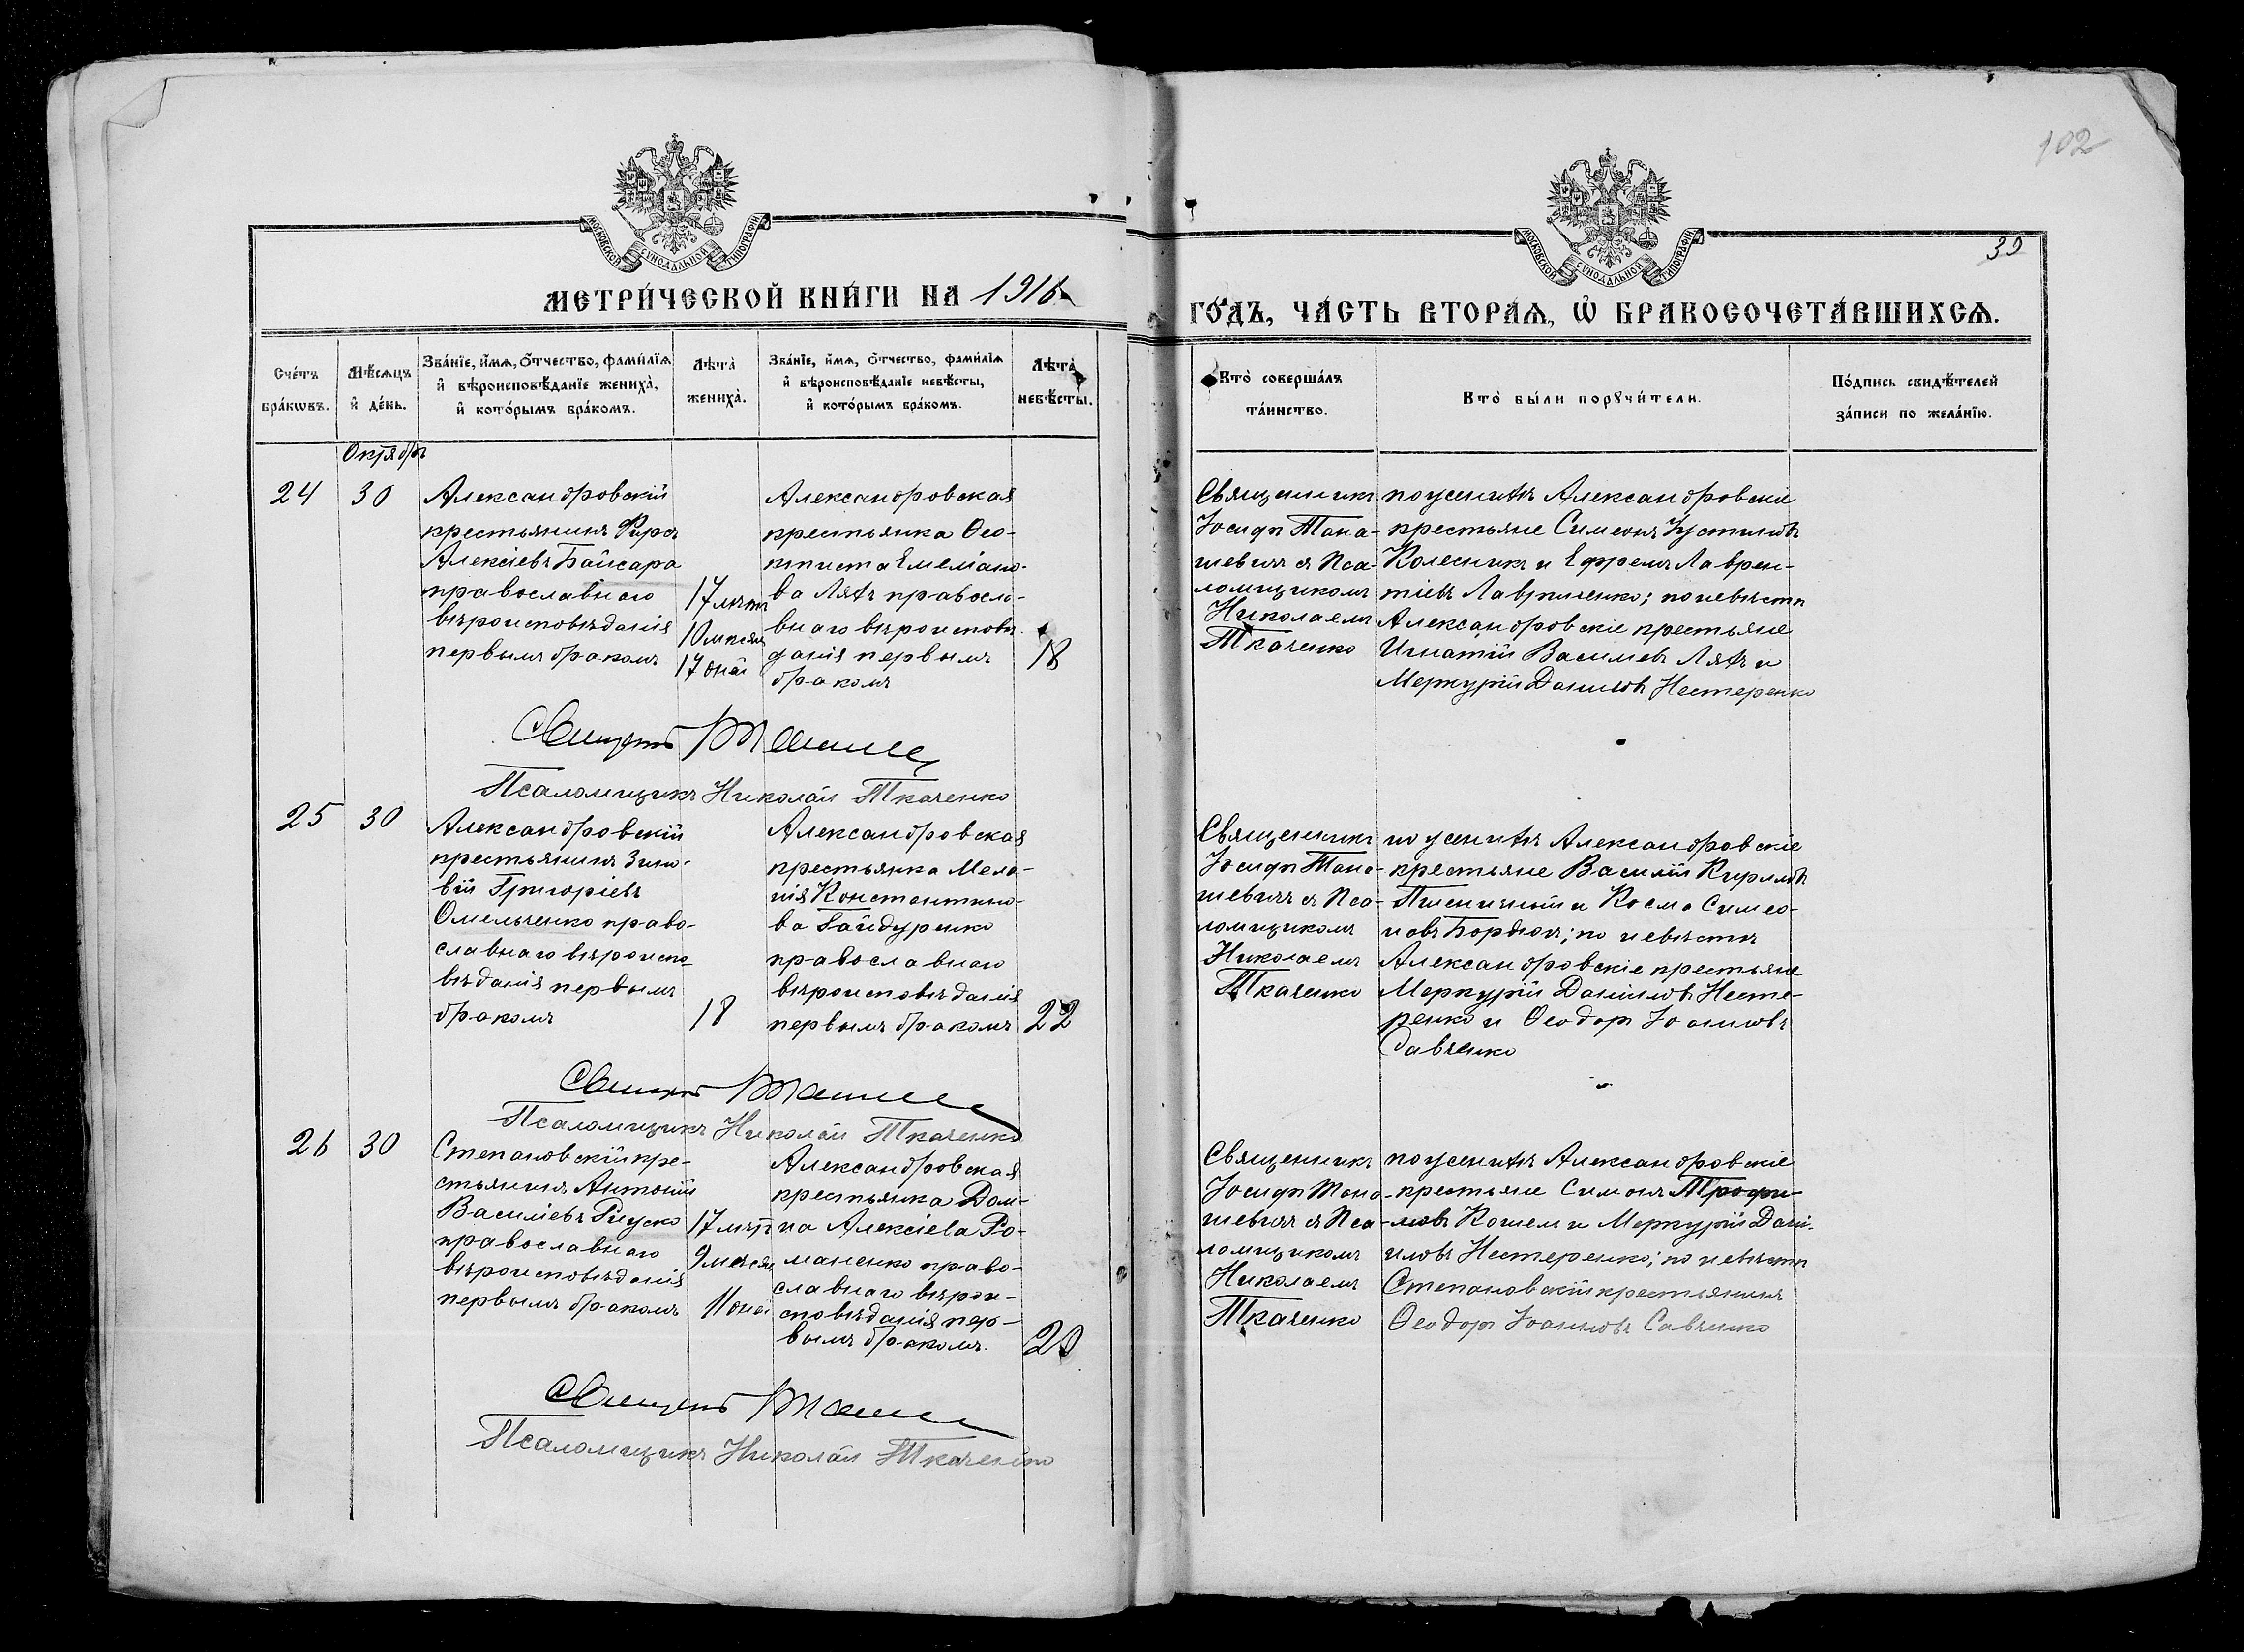 102
МОСКОВСКОЙ СѴНОДАЛЬНОЙ ТИПОГРАФІИ
МОСКОВСКОЙ СѴНОДАЛЬНОЙ ТИПОГРАФІИ
39
МЕТРИ́ЧЕСКОЙ КНИ́ГИ НА 1916
ГО́ДЪ, ЧА́СТЬ ВТОРА́Ѧ, Ѽ БРАКОСОЧЕТА́ВШИХСѦ.
Сче́тъ
бра́кѡвъ.
Мѣ́сѧцъ
и҆ де́нь.
Зва́нїе, и҆́мѧ, ѻ҆́тчество, фами́лїѧ
и҆ вѣроисповѣ́данїе жениха̀,
и҆ кото́рымъ бра́комъ.
Лѣ́та̀
жениха̀.
Зва́нїе, и҆́мѧ, ѻ҆́тчество, фами́лїѧ
и҆ вѣроисповѣ́данїе невѣ́сты,
и҆ кото́рымъ бра́комъ.
Лѣ́та̀
невѣ́сты.
Кто̀ соверша́лъ
та́инство.
Кто̀ бы́ли порꙋчи́тели.
По́дпись свидѣ́телей
за́писи по жела́нїю.
Октябрь
24
30
Александровскій
крестьянинъ Фирсъ
Алексіевъ Байсара
православнаго
вѣроисповѣданія
первымъ бракомъ
17 лѣтъ
10 мѣсяц
17 дней
Александровская
крестьянка Ѳео-
ктиста Емеліано-
ва Ляхъ правосла-
внаго вѣроисповѣ-
данія первымъ
бракомъ
18
Священникъ
Іосифъ Тана-
шевичъ съ Пса-
ломщикомъ
Николаемъ
Ткаченко
по женихѣ Александровскіе
крестьяне Симеонъ Іустиновъ
Колесникъ и Ефремъ Лаврен-
тіевъ Лавриненко; по невѣстѣ
Александровскіе крестьяне
Игнатій Василіевъ Ляхъ и
Меркурій Даниловъ Нестеренко
Священникъ Танаше
Псаломщикъ Николай Ткаченко
25
30
Александровскій
крестьянинъ Зино-
вій Григоріевъ
Омельченко право-
славнаго вѣроиспо-
вѣданія первымъ
бракомъ
18
Александровская
крестьянка Мела-
нія Константино-
ва Гайдуренко
православнаго
вѣроисповѣданія
первымъ бракомъ
22
Священникъ
Іосифъ Тана-
шевичъ съ Пса-
ломщикомъ
Николаемъ
Ткаченко
по женихѣ Александровскіе
крестьяне Василій Кирилловъ
Пшеничный и Косма Симео-
новъ Бордюгъ; по невѣстѣ
Александровскіе крестьяне
Меркурій Даниловъ Несте-
ренко и Ѳеодоръ Іоанновъ
Савченко
Священникъ Танаше
Псаломщикъ Николай Ткаченко
26
30
Степановскій кре-
стьянинъ Антоній
Василіевъ Гнуско
православнаго
вѣроисповѣданія
первымъ бракомъ
17 лѣтъ
9 мѣсяц
11 дней
Александровская
крестьянка Дом-
на Алексіева Ро-
маненко право-
славнаго вѣрои-
сповѣданія пер-
вымъ бракомъ.
20
Священникъ
Іосифъ Тана-
шевичъ съ Пса-
ломщикомъ
Николаемъ
Ткаченко
по женихѣ Александровскіе
крестьяне Симонъ Трофи-
мовъ Кошель и Меркурій Дані-
иловъ Нестеренко; по невѣстѣ
Степановскій крестьянинъ
Ѳеодоръ Іоанновъ Савченко
Священникъ Танаше
Псаломщикъ Николай Ткаченко